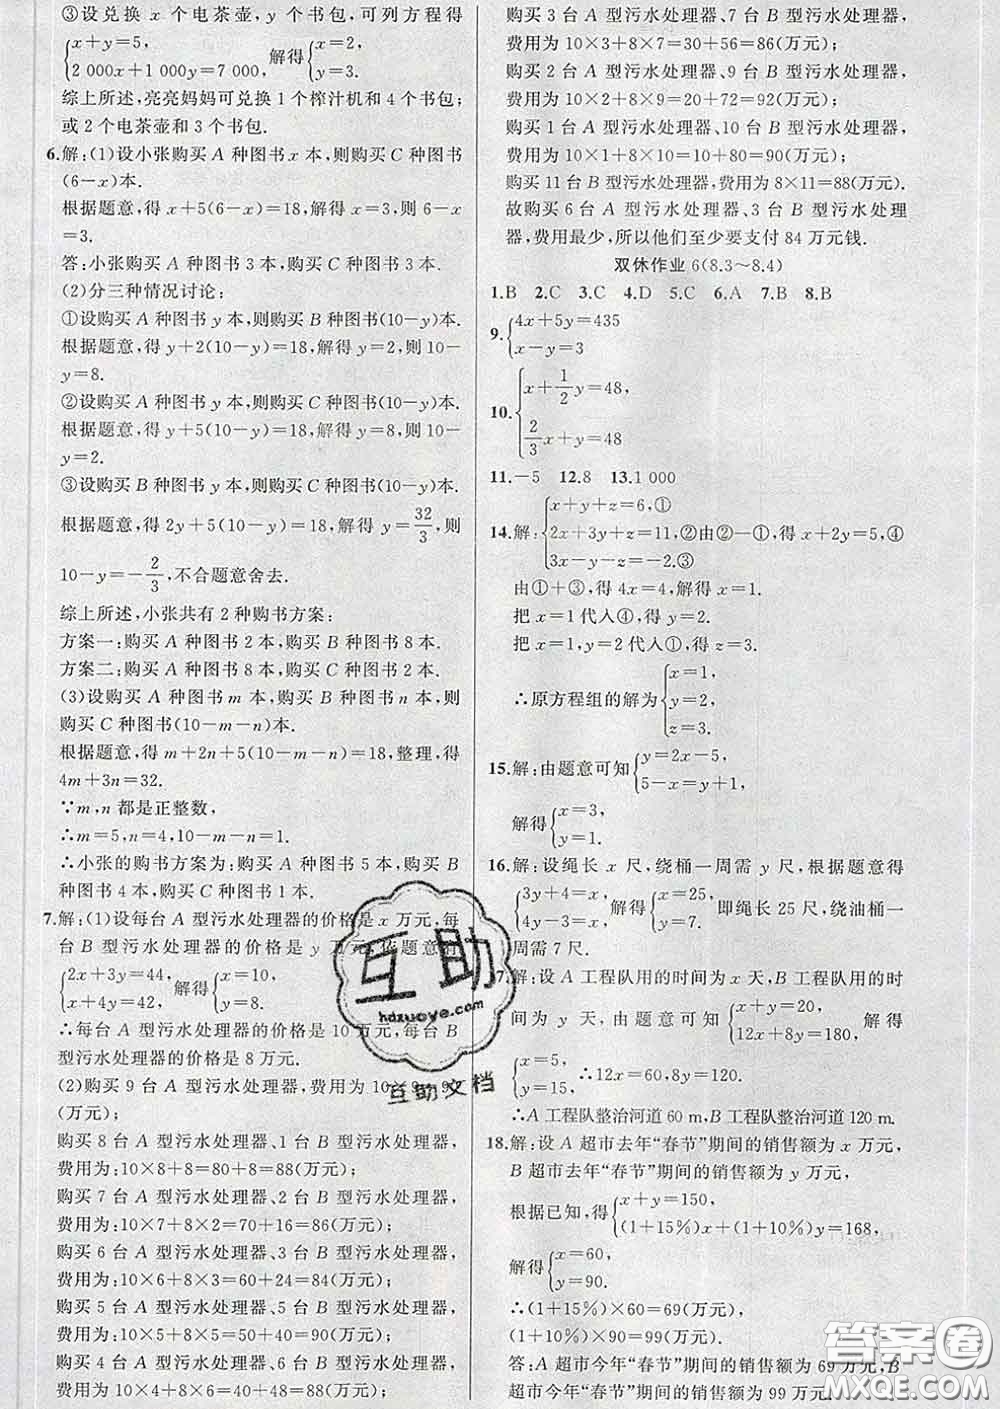 ③设兑换 x 个电茶壶, y 个书包, 可列方程得
{x+y=5, 2 000x+1 000y=7 000, 解得{x=2, y=3.
综上所述,亮亮妈妈可兑换 1 个榨汁机和 4 个书包;
或 2 个电茶壶和 3 个书包.
6.解:(1)设小张购买 A 种图书 x 本,则购买 C 种图书
(6-x)本.
根据题意,得 x+5(6-x)=18,解得 x=3,则 6-x
=3.
答:小张购买 A 种图书 3 本,购买 C 种图书 3 本.
(2)分三种情况讨论:
①设购买 A 种图书 y 本,则购买 B 种图书(10-y)本.
根据题意,得 y+2(10-y)=18,解得 y=2,则 10-
y=8.
②设购买 A 种图书 y 本,则购买 C 种图书(10-y)本.
根据题意,得 y+5(10-y)=18,解得 y=8,则 10-
y=2.
③设购买 B 种图书 y 本,则购买 C 种图书(10-y)本.
根据题意,得 2y+5(10-y)=18,解得 y=32/3,则
10-y=-2/3,不合题意舍去.
综上所述,小张共有 2 种购书方案:
方案一:购买 A 种图书 2 本,购买 B 种图书 8 本.
方案二:购买 A 种图书 8 本,购买 C 种图书 2 本.
(3)设购买 A 种图书 m 本,购买 B 种图书 n 本,则
购买 C 种图书(10-m-n)本.
根据题意,得 m+2n+5(10-m-n)=18,整理,得
4m+3n=32.
∵m,n 都是正整数,
∴m=5,n=4,10-m-n=1.
∴小张的购书方案为:购买 A 种图书 5 本,购买 B
种图书 4 本,购买 C 种图书 1 本.
7.解:(1)设每台 A 型污水处理器的价格是 x 万元,每
台 B 型污水处理器的价格是 y 万元,依题意得
{2x+3y=44, x+4y=42, 解得{x=10, y=8.
∴每台 A 型污水处理器的价格是 10 万元,每台 B
型污水处理器的价格是 8 万元.
(2)购买 9 台 A 型污水处理器,费用为 10×9=90
(万元);
购买 8 台 A 型污水处理器、1 台 B 型污水处理器,
费用为:10×8+8=80+8=88(万元);
购买 7 台 A 型污水处理器、2 台 B 型污水处理器,
费用为:10×7+8×2=70+16=86(万元);
购买 6 台 A 型污水处理器、3 台 B 型污水处理器,
费用为:10×6+8×3=60+24=84(万元);
购买 5 台 A 型污水处理器、5 台 B 型污水处理器,
费用为:10×5+8×5=50+40=90(万元);
购买 4 台 A 型污水处理器、6 台 B 型污水处理器,
费用为:10×4+8×6=40+48=88(万元);
购买 3 台 A 型污水处理器、7 台 B 型污水处理器,
费用为 10×3+8×7=30+56=86(万元);
购买 2 台 A 型污水处理器、9 台 B 型污水处理器,
费用为 10×2+8×9=20+72=92(万元);
购买 1 台 A 型污水处理器、10 台 B 型污水处理器,
费用为 10×1+8×10=10+80=90(万元);
购买 11 台 B 型污水处理器,费用为 8×11=88(万元).
故购买 6 台 A 型污水处理器、3 台 B 型污水处理
器,费用最少,所以他们至少要支付 84 万元钱.
双休作业 6(8.3~8.4)
1.B 2.C 3.C 4.D 5.C 6.A 7.B 8.B
9.{4x+5y=435 x-y=3
10.{x+1/2y=48, 2/3x+y=48
11.-5 12.8 13.1 000
14.解:{x+y+z=6,① 2x+3y+z=11,② 3x-y-z=-2.③ 由②-①,得 x+2y=5,④
由①+③,得 4x=4,解得 x=1.
把 x=1 代入④,得 y=2.
把 x=1,y=2 代入①,得 z=3.
∴原方程组的解为{x=1, y=2, z=3.
15.解:由题意可知{y=2x-5, 5-x=y+1,
解得{x=3, y=1.
16.解:设绳长 x 尺,绕桶一周需 y 尺,根据题意得
{3y+4=x, 4y-3=x, 解得{x=25, y=7. 即绳长 25 尺,绕油桶一
周需 7 尺.
17.解:设 A 工程队用的时间为 x 天,B 工程队用的时
间为 y 天,由题意可知{x+y=20, 12x+8y=180, 解得
{x=5, y=15, ∴12x=60,8y=120.
∴A 工程队整治河道 60 m,B 工程队整治河道 120 m.
18.解:设 A 超市去年“春节”期间的销售额为 x 万元,
B 超市去年“春节”期间的销售额为 y 万元,
根据已知,得{x+y=150, (1+15%)x+(1+10%)y=168,
解得{x=60, y=90.
∴(1+15%)x=60=69(万元),
(1+10%)x=90=99(万元).
答:A 超市今年“春节”期间的销售额为 69 万元,B
超市今年“春节”期间的销售额为 99 万元.
互助
hdzuoye.com
互助文档
答案圈
MXQE.COM